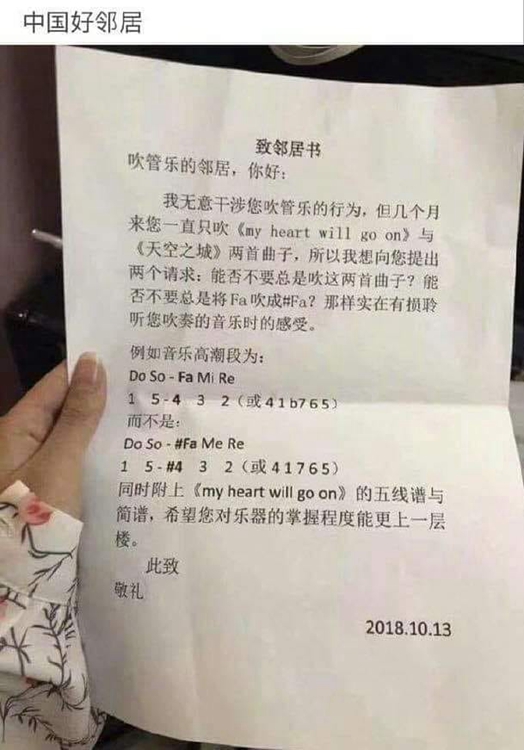 中国好邻居
致邻居书
吹管乐的邻居，你好：
我无意干涉您吹管乐的行为，但几个月
来您一直只吹《my heart will go on》与
《天空之城》两首曲子，所以我想向您提出
两个请求：能否不要总是吹这两首曲子？能
否不要总是将Fa吹成#Fa？那样实在有损聆
听您吹奏的音乐时的感受。
例如音乐高潮段为：
Do So - Fa Mi Re
1 5-4 3 2（或41b765）
而不是：
Do So - #Fa Me Re
1 5-#4 3 2（或41765）
同时附上《my heart will go on》的五线谱与
简谱，希望您对乐器的掌握程度能更上一层
楼。
此致
敬礼
2018.10.13